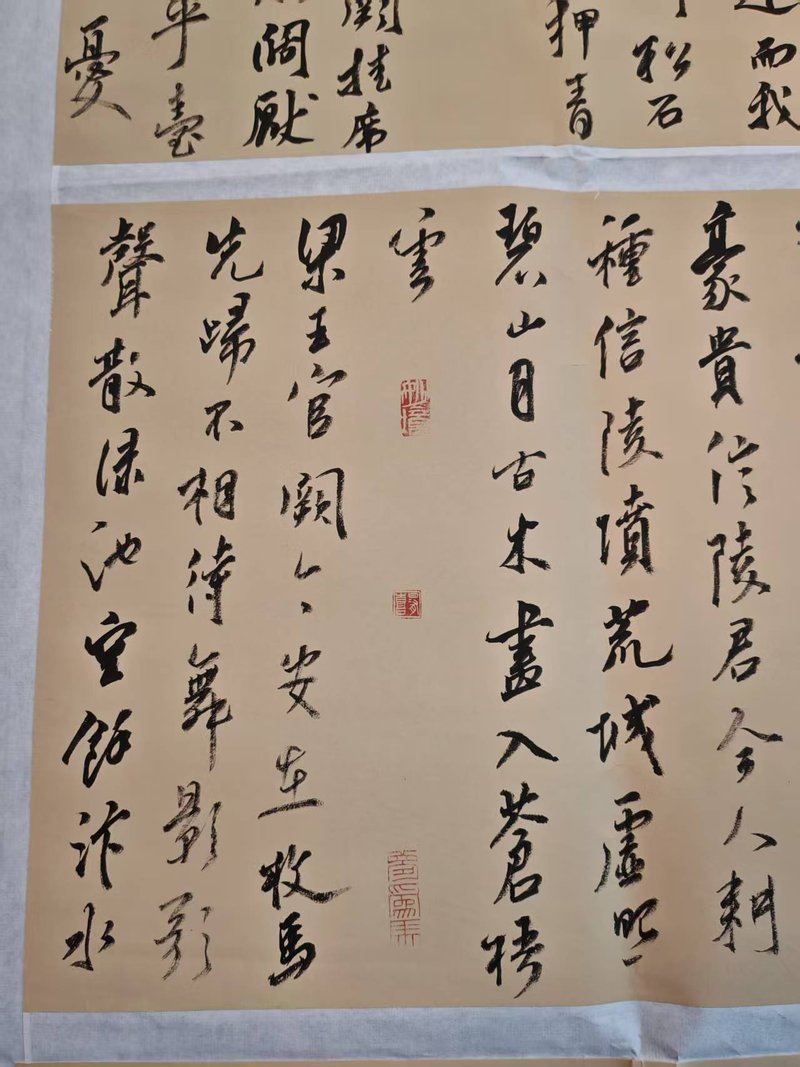 而我
松石
狎青
闕挂席
闊厭
平臺
憂
豪貴信陵君今人耕
種信陵墳荒城虛照
碧山月古木盡入蒼梧
雲
梁王官闕今安在枚馬
先歸不相待舞影歌
聲散淥池空餘汴水